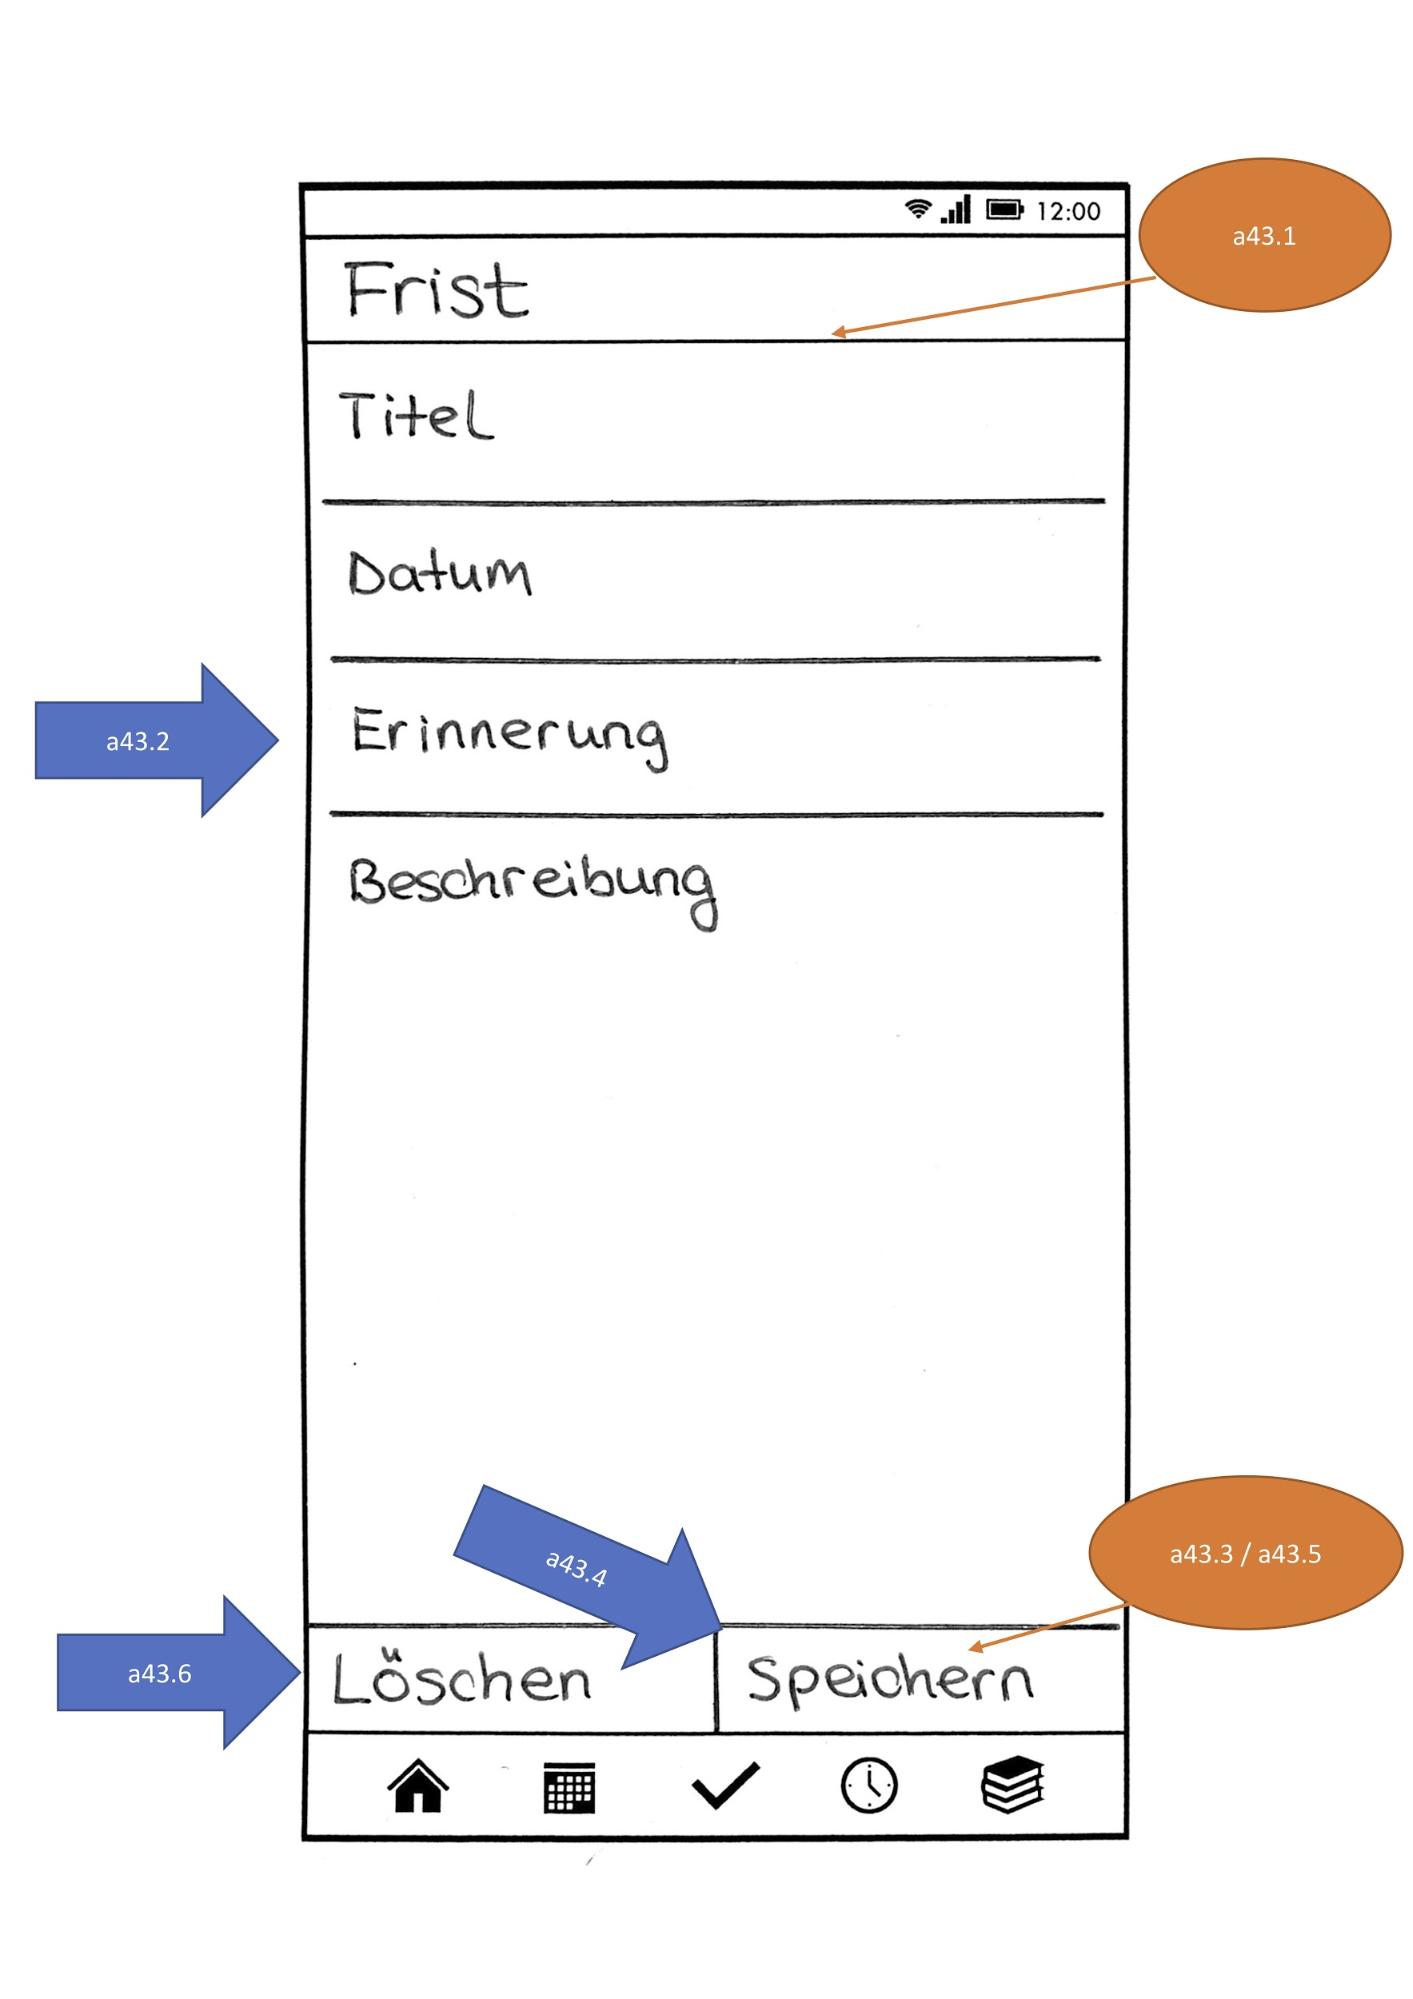 12:00
a43.1
Frist
Titel
Datum
a43.2
Erinnerung
Beschreibung
a43.4
a43.3 / a43.5
a43.6
Löschen
Speichern